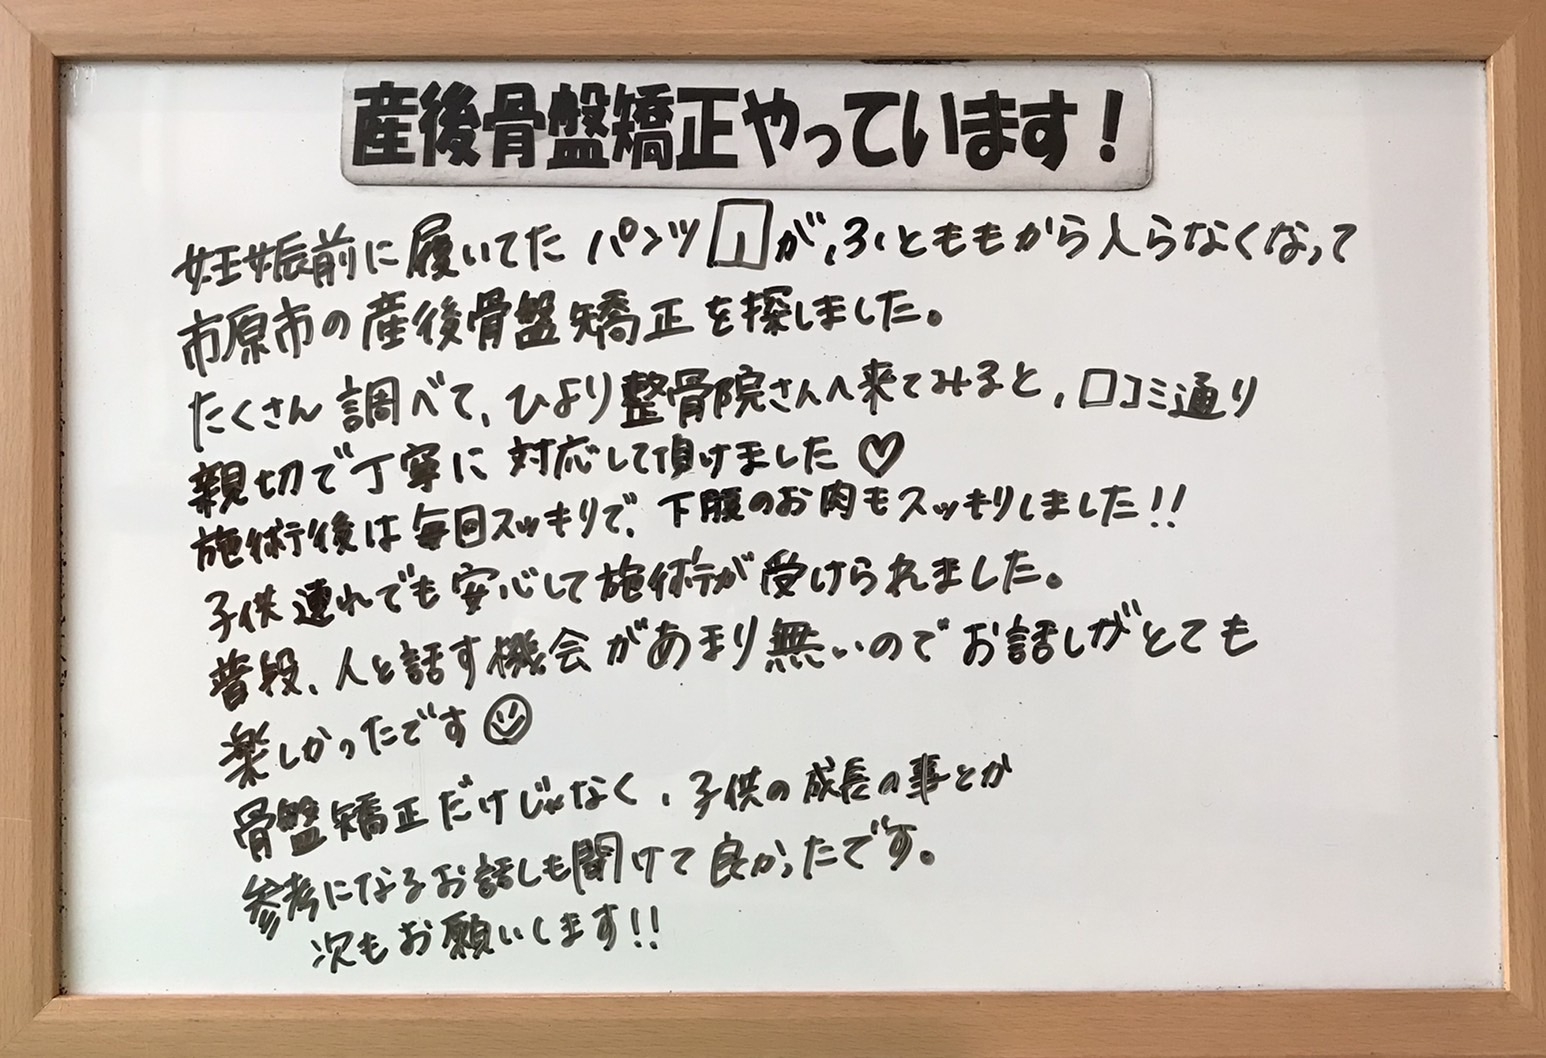 産後骨盤矯正やっています！
妊娠前に履いてたパンツ👖が、ふとももから入らなくなって
市原市の産後骨盤矯正を探しました。
たくさん調べて、ひより整骨院さんへ来てみると、口コミ通り
親切で丁寧に対応して頂けました♡
施術後は毎回スッキリで、下腹のお肉もスッキリしました!!
子供連れでも安心して施術が受けられました。
普段、人と話す機会があまり無いのでお話しがとても
楽しかったです☺
骨盤矯正だけじゃなく、子供の成長の事とか
参考になるお話しも聞けて良かったです。
次もお願いします!!